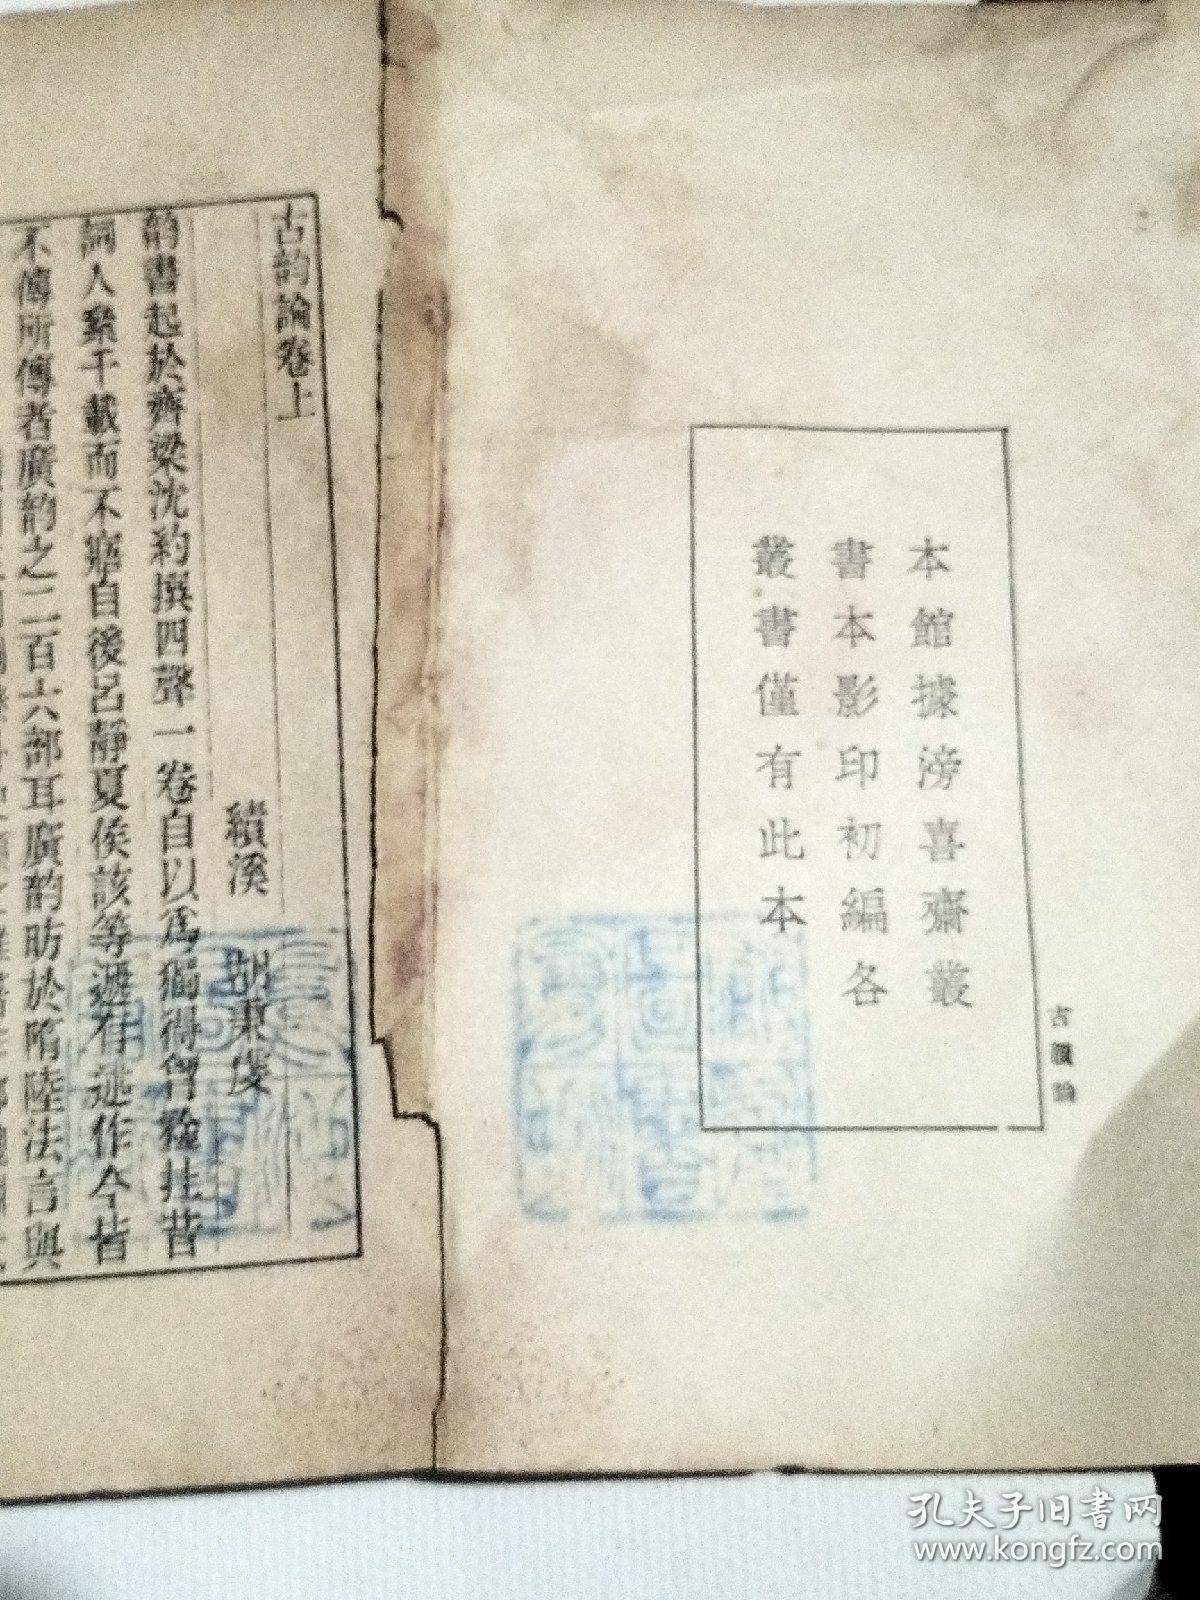 古韻論
本館據滂喜齋叢
書本影印初編各
叢書僅有此本
古韵論卷上
績溪 胡秉虔
韵書起於齊梁沈約撰四聲一卷自以爲獨得胷襟推昔
詞人絫千載而不寤自後呂靜夏侯該等遞有述作今皆
不傳所傳者廣韵之二百六部耳廣韵昉於隋陸法言與
孔夫子旧书网
www.kongfz.com